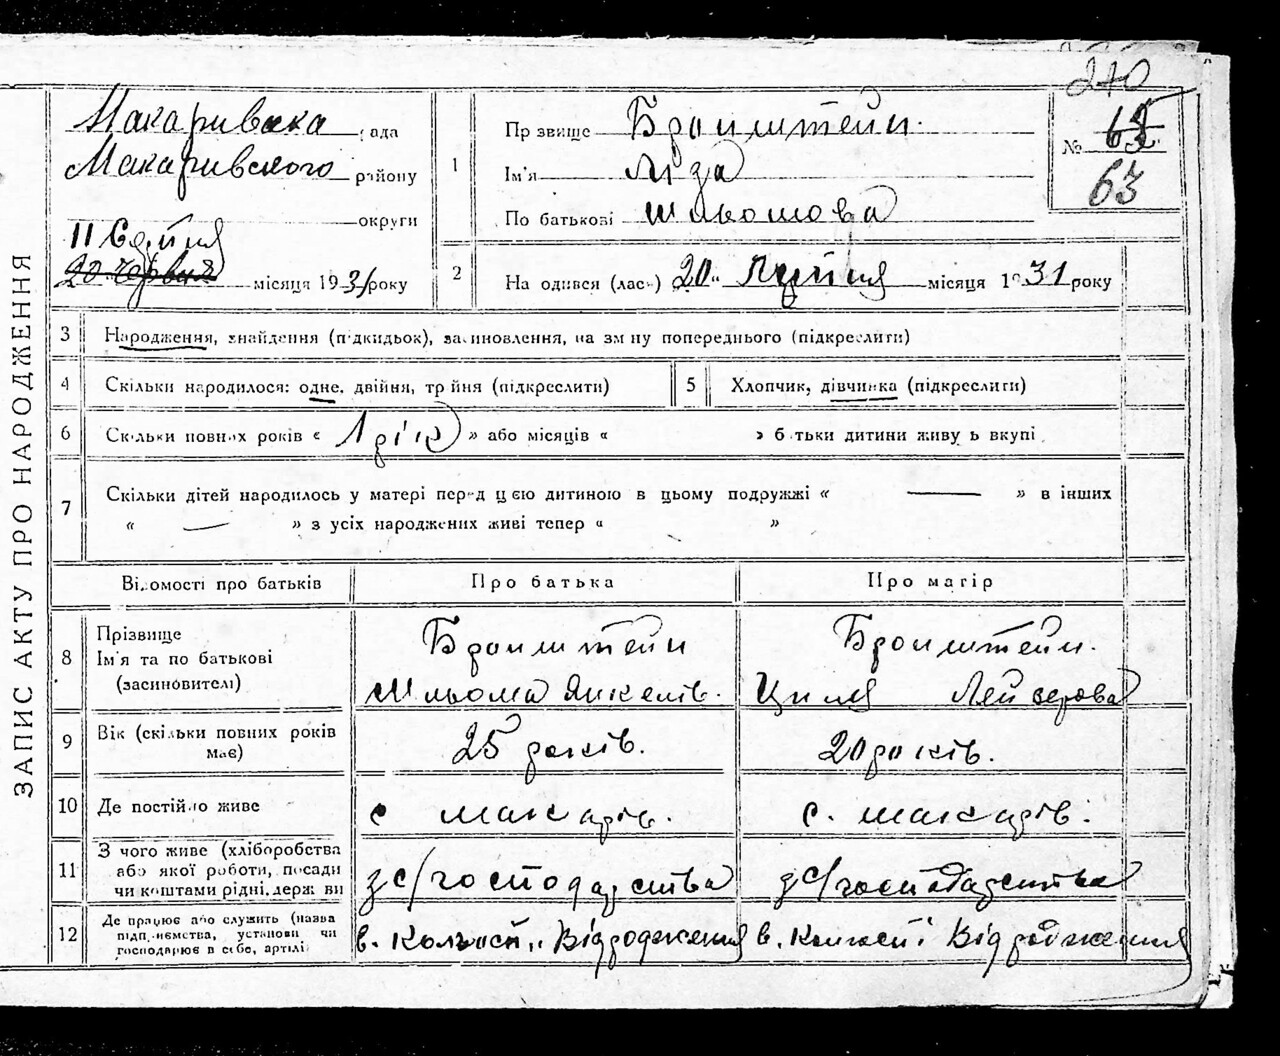 ЗАПИС АКТУ ПРО НАРОДЖЕННЯ
240
Макаривска рада
Макаривского району
округи
11 Серпня
20 червня місяця 1931 року
1
Прізвище Бронштейн.
Ім'я Ліза
По батькові Шльомова
№ 63
63
2 На одився (лась) 20 Липня місяця 1931 року
3 Народження, знайдення (підкидьок), засиновлення, на зміну попереднього (підкреслити)
4 Скільки народилося: одне, двійня, трійня (підкреслити)
5 Хлопчик, дівчинка (підкреслити)
6 Скільки повних років « 1 рік » або місяців « » батьки дитини живуть вкупі
7 Скільки дітей народилось у матері перед цією дитиною в цьому подружжі « — » в інших
« — » з усіх народжених живі тепер « »
Відомості про батьків Про батька Про матір
8 Прізвище
Ім'я та по батькові
(засиновителі)
Бронштейн
Шльома Янкелів.
Бронштейн.
Циля Лейзерова
9 Вік (скільки повних років має) 25 років. 20 років.
10 Де постійно живе с Макарів. с. Макарів.
11 З чого живе (хліборобства
або якої роботи, посади
чи коштами рідні, держ ви
з с/господарства з с/господарства
12 Де працює або служить (назва
підприємства, установи чи
господарює в себе, артілі)
в. Колгоспі „Відродження в. Колгоспі Відродження